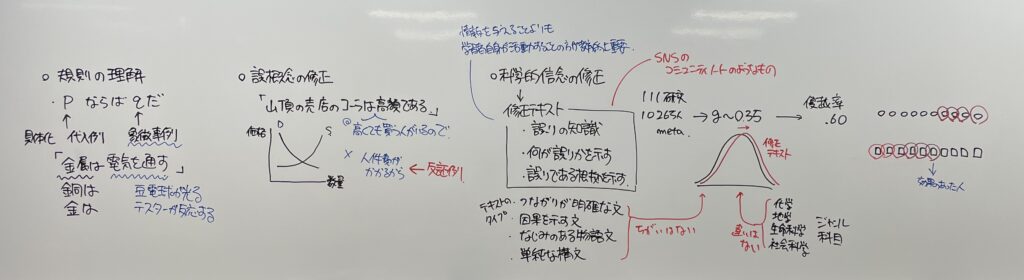 ○ 規則の理解
・P ならば qだ
具体化 代入例 象徴事例
「金属は電気を通す」
銅は 豆電球が光る
金は テスターが反応する
○ 誤概念の修正
「山頂の売店のコーラは高額である」
価格 D S
数量
◎ 高くても買う人がいるので
× 人件費が
かかるから
← 反証例
情報を与えることよりも
学習者自身が活動することの方が教育的に重要
○科学的信念の修正
修正テキスト
・誤りの知識
・何が誤りかを示す
・誤りである根拠を示す
SNSの
コミュニティノートのようなもの
テキストの
タイプ
・つながりが明確な文
・因果を示す文
・なじみのある物語文
・単純な構文
ちがいはない
111研究
10265人
meta.
→ g=0.35 →
優越率
.60
修正
テキスト
違いは
ない
化学
地学
生命科学
社会科学
ジャンル
科目
効果のあった人